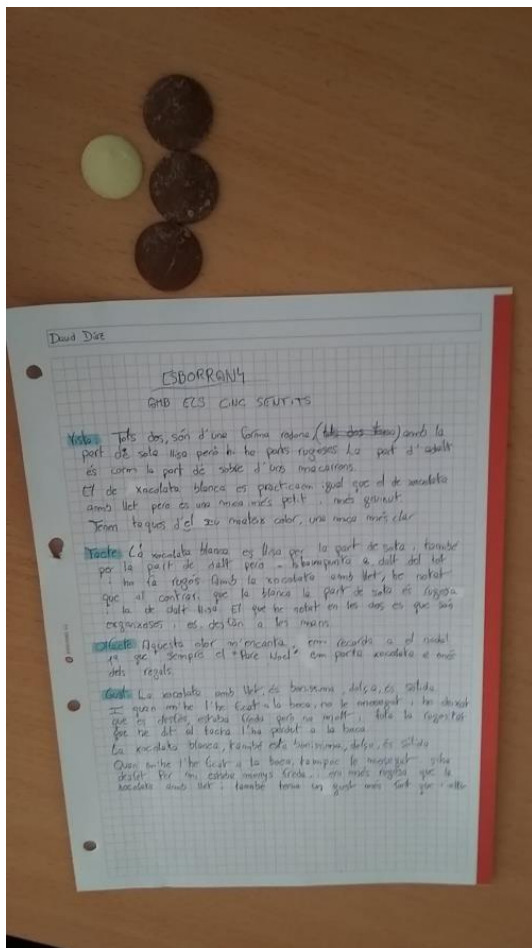 David Díaz
ESBORRANY
AMB ELS CINC SENTITS
Vista: Tots dos, són d'una forma rodona, amb la
part de sota llisa però hi ha parts rugoses La part d'adalt
és com la part de sobre d'uns macarrons.
El de xocolata blanca es practicam igual que el de xocolata
amb llet pero es una mica més petit i més gruixut.
Tenen taques d'el seu mateix color, una mica més clar
Tacte: La xocolata blanca es llisa per la part de sota i també
per la part de dalt però a dalt del tot
ha rugós Amb la xocolata amb llet, he notat
que al contrari que la blanca la part de sota és rugosa
i la de dalt llisa. El que he notat en les dos es que són
i es desfan a les mans.
Olfacte: Aquesta olor m'encanta, em recorda a el nadal
ja que sempre el "Pare Noel" em porta xocolata a més
dels regals.
Gust: La xocolata amb llet, és boníssima, dolça, és sòlida
I quan m'he l'he ficat a la boca, no le mosegat i he deixat
que es desfés, estaba freda però no molt i tota la rugositat
que he dit al tacte l'ha perdut a la boca
La xocolata blanca, també esta boníssima, dolça, és sòlida
Quan m'he l'he ficat a la boca, tampoc le mosegat
desfet Per mi estaba menys freda i era més rugosa que la
xocolata amb llet i també tenia un gust més fort que